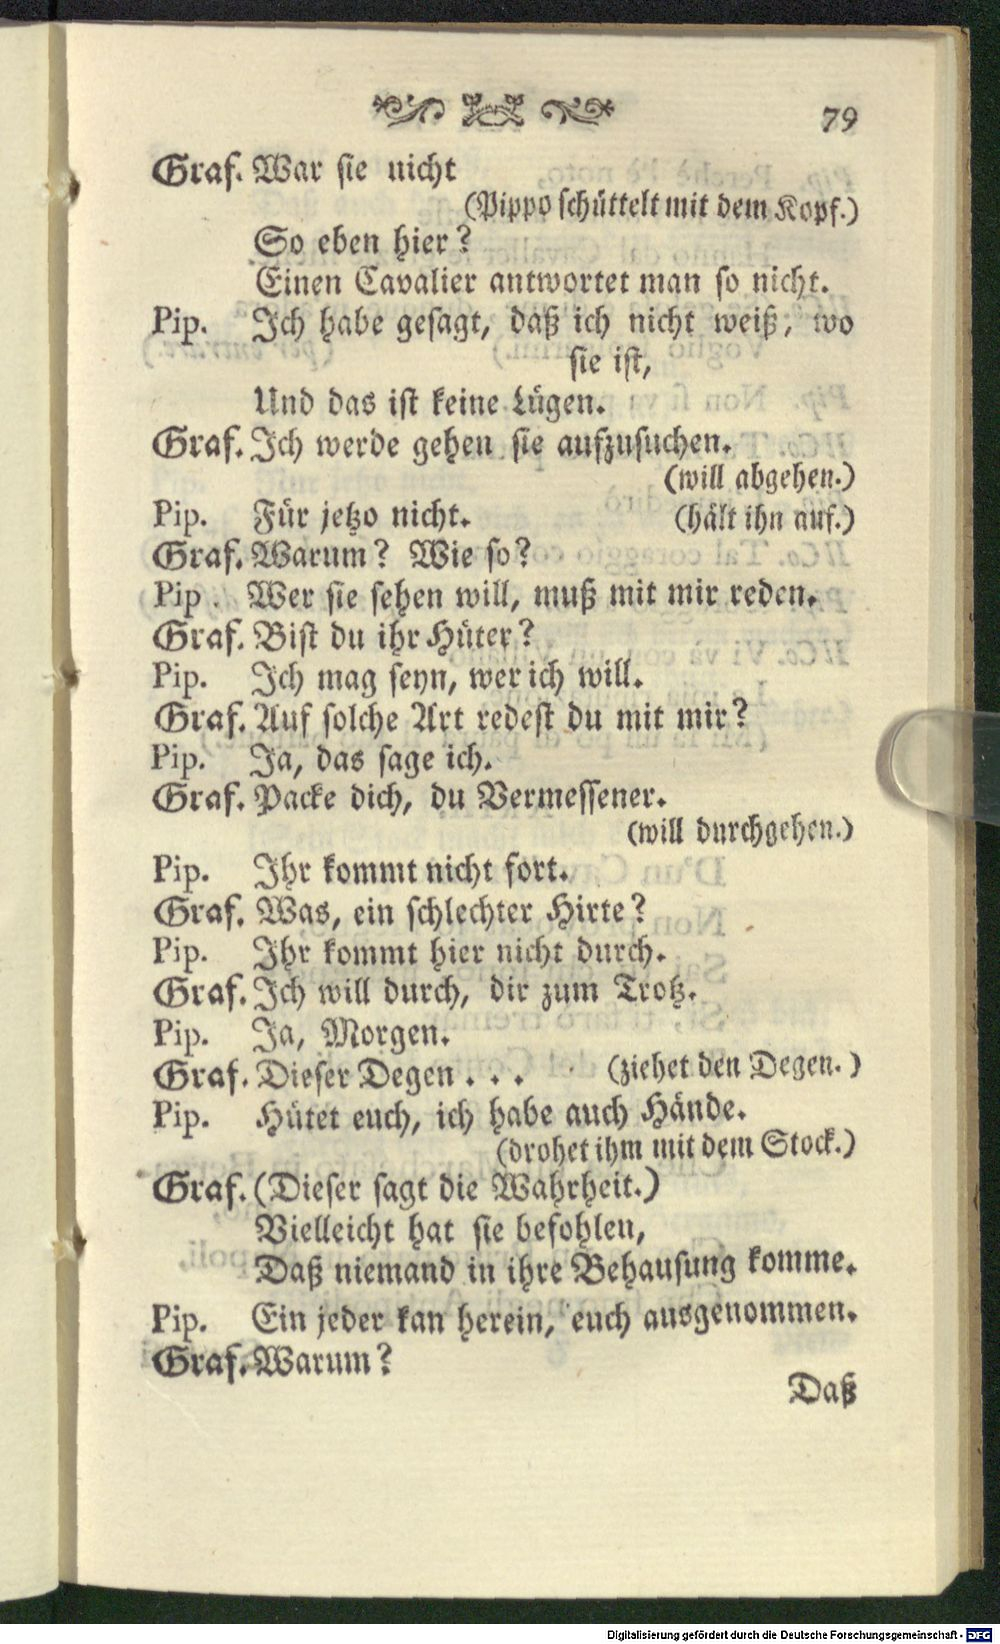 79
Graf. War sie nicht
(Pippo schüttelt mit dem Kopf.)
So eben hier?
Einen Cavalier antwortet man so nicht.
Pip. Ich habe gesagt, daß ich nicht weiß, wo
sie ist,
Und das ist keine Lügen.
Graf. Ich werde gehen sie aufzusuchen.
(will abgehen.)
Pip. Für jetzo nicht. (hält ihn auf.)
Graf. Warum? Wie so?
Pip. Wer sie sehen will, muß mit mir reden.
Graf. Bist du ihr Hüter?
Pip. Ich mag seyn, wer ich will.
Graf. Auf solche Art redest du mit mir?
Pip. Ja, das sage ich.
Graf. Packe dich, du Vermessener.
(will durchgehen.)
Pip. Ihr kommt nicht fort.
Graf. Was, ein schlechter Hirte?
Pip. Ihr kommt hier nicht durch.
Graf. Ich will durch, dir zum Trotz.
Pip. Ja, Morgen.
Graf. Dieser Degen . . . (ziehet den Degen.)
Pip. Hütet euch, ich habe auch Hände.
(drohet ihm mit dem Stock.)
Graf. (Dieser sagt die Wahrheit.)
Vielleicht hat sie befohlen,
Daß niemand in ihre Behausung komme.
Pip. Ein jeder kan herein, euch ausgenommen.
Graf. Warum?
Daß
Digitalisierung gefördert durch die Deutsche Forschungsgemeinschaft - DFG